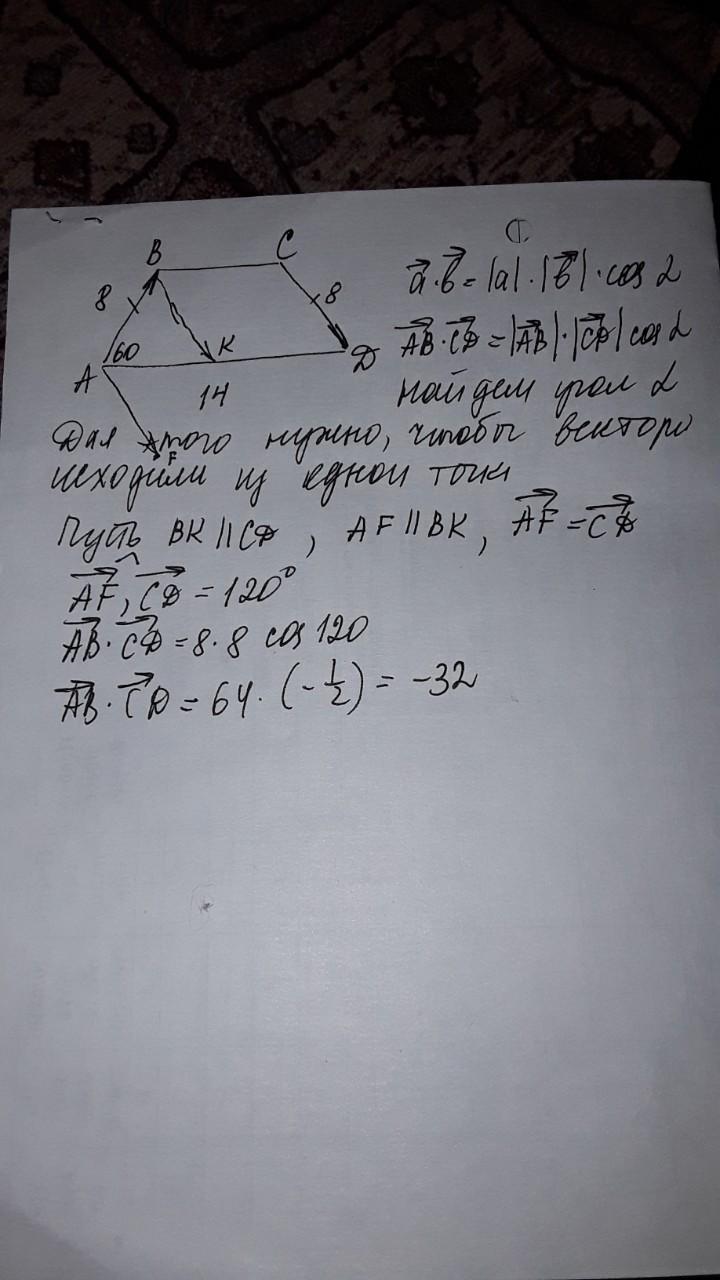 B C
8 8
60 K
A D
14
F
a⃗·b⃗=|a|·|b⃗|·cos α
AB⃗·CD⃗=|AB⃗|·|CD⃗| cos α
найдем угол α
Для этого нужно, чтобы векторы
исходили из одной точки
Пусть BK||CD, AF||BK, AF⃗=CD⃗
AF⃗,^CD⃗=120°
AB⃗·CD⃗=8·8 cos 120
AB⃗·CD⃗=64·(-1/2)=-32